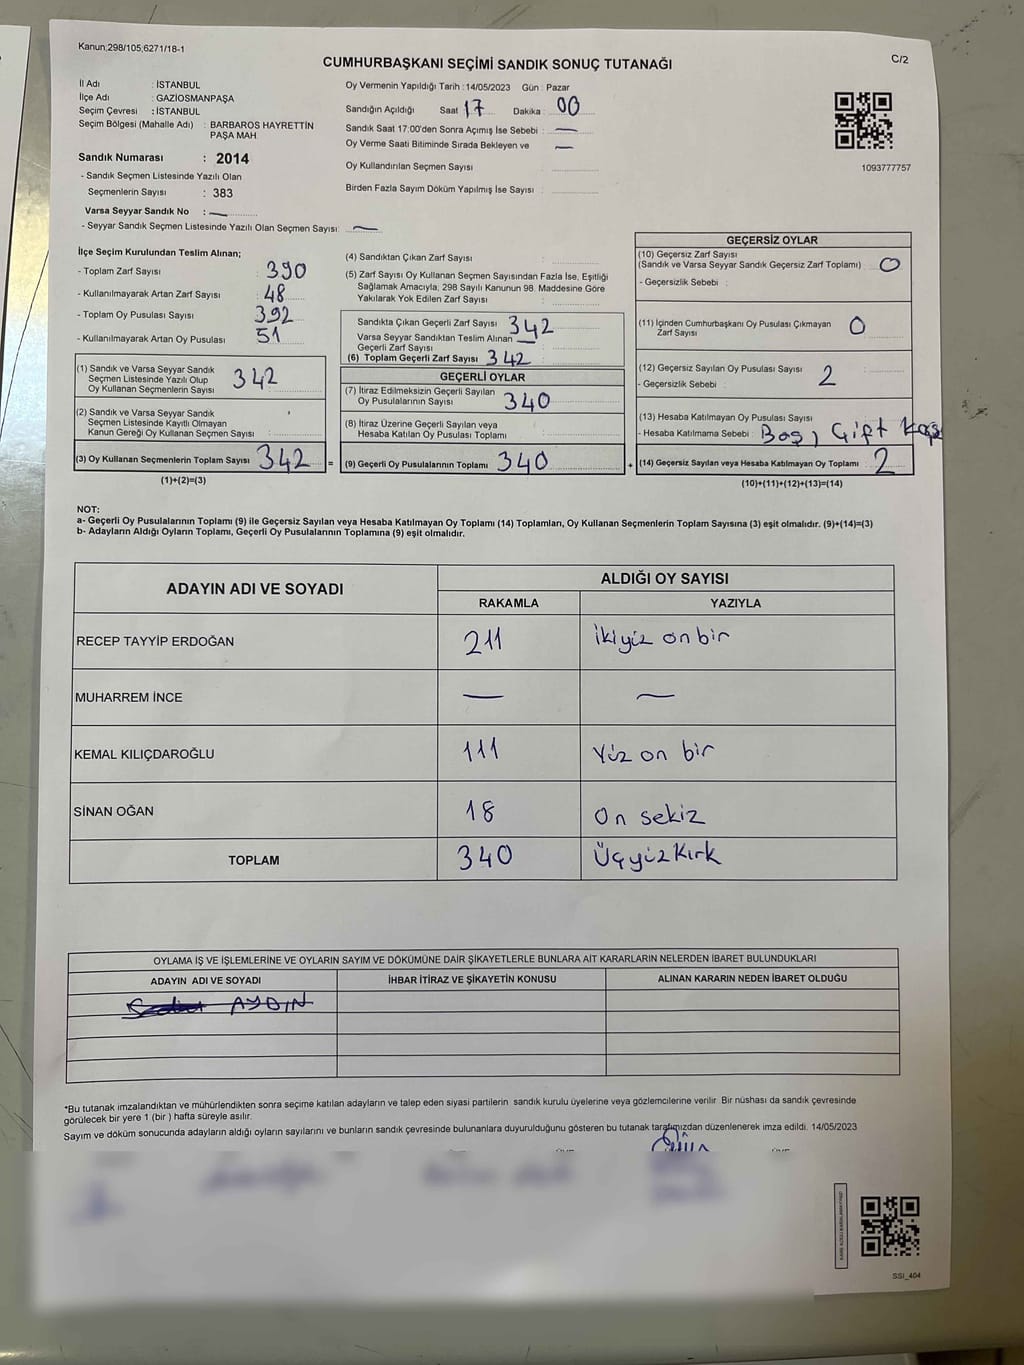 Kanun;298/105;6271/18-1
C/2
CUMHURBAŞKANI SEÇİMİ SANDIK SONUÇ TUTANAĞI
İl Adı : İSTANBUL
İlçe Adı : GAZİOSMANPAŞA
Seçim Çevresi : İSTANBUL
Seçim Bölgesi (Mahalle Adı) : BARBAROS HAYRETTİN
PAŞA MAH.
Sandık Numarası : 2014
- Sandık Seçmen Listesinde Yazılı Olan
Seçmenlerin Sayısı : 383
Varsa Seyyar Sandık No : —
- Seyyar Sandık Seçmen Listesinde Yazılı Olan Seçmen Sayısı: —
Oy Vermenin Yapıldığı Tarih :14/05/2023 Gün : Pazar
Sandığın Açıldığı Saat 17 Dakika : 00
Sandık Saat 17:00'den Sonra Açımış İse Sebebi : —
Oy Verme Saati Bitiminde Sırada Bekleyen ve —
Oy Kullandırılan Seçmen Sayısı
Birden Fazla Sayım Döküm Yapılmış İse Sayısı :
1093777757
İlçe Seçim Kurulundan Teslim Alınan;
- Toplam Zarf Sayısı : 390
- Kullanılmayarak Artan Zarf Sayısı : 48
- Toplam Oy Pusulası Sayısı : 392
- Kullanılmayarak Artan Oy Pusulası 51
(1) Sandık ve Varsa Seyyar Sandık
Seçmen Listesinde Yazılı Olup
Oy Kullanan Seçmenlerin Sayısı : 342
(2) Sandık ve Varsa Seyyar Sandık
Seçmen Listesinde Kayıtlı Olmayan
Kanun Gereği Oy Kullanan Seçmen Sayısı :
(3) Oy Kullanan Seçmenlerin Toplam Sayısı 342 =
(1)+(2)=(3)
(4) Sandıktan Çıkan Zarf Sayısı :
(5) Zarf Sayısı Oy Kullanan Seçmen Sayısından Fazla İse, Eşitliği
Sağlamak Amacıyla, 298 Sayılı Kanunun 98. Maddesine Göre
Yakılarak Yok Edilen Zarf Sayısı :
Sandıkta Çıkan Geçerli Zarf Sayısı : 342
Varsa Seyyar Sandıktan Teslim Alınan —
Geçerli Zarf Sayısı
(6) Toplam Geçerli Zarf Sayısı : 342
GEÇERLİ OYLAR
(7) İtiraz Edilmeksizin Geçerli Sayılan
Oy Pusulalarının Sayısı : 340
(8) İtiraz Üzerine Geçerli Sayılan veya
Hesaba Katılan Oy Pusulası Toplamı :
(9) Geçerli Oy Pusulalarının Toplamı : 340 +
GEÇERSİZ OYLAR
(10) Geçersiz Zarf Sayısı
(Sandık ve Varsa Seyyar Sandık Geçersiz Zarf Toplamı) : 0
- Geçersizlik Sebebi :
(11) İçinden Cumhurbaşkanı Oy Pusulası Çıkmayan
Zarf Sayısı : 0
(12) Geçersiz Sayılan Oy Pusulası Sayısı : 2
- Geçersizlik Sebebi :
(13) Hesaba Katılmayan Oy Pusulası Sayısı
- Hesaba Katılmama Sebebi : Boş, Çift
(14) Geçersiz Sayılan veya Hesaba Katılmayan Oy Toplamı : 2
(10)+(11)+(12)+(13)=(14)
NOT:
a- Geçerli Oy Pusulalarının Toplamı (9) ile Geçersiz Sayılan veya Hesaba Katılmayan Oy Toplamı (14) Toplamları, Oy Kullanan Seçmenlerin Toplam Sayısına (3) eşit olmalıdır. (9)+(14)=(3)
b- Adayların Aldığı Oyların Toplamı, Geçerli Oy Pusulalarının Toplamına (9) eşit olmalıdır.
ADAYIN ADI VE SOYADI ALDIĞI OY SAYISI
RAKAMLA YAZIYLA
RECEP TAYYİP ERDOĞAN 211 İkiyüz on bir
MUHARREM İNCE — —
KEMAL KILIÇDAROĞLU 111 Yüz on bir
SİNAN OĞAN 18 On sekiz
TOPLAM 340 ÜçyüzKırk
OYLAMA İŞ VE İŞLEMLERİNE VE OYLARIN SAYIM VE DÖKÜMÜNE DAİR ŞİKAYETLERLE BUNLARA AİT KARARLARIN NELERDEN İBARET BULUNDUKLARI
ADAYIN ADI VE SOYADI İHBAR İTİRAZ VE ŞİKAYETİN KONUSU ALINAN KARARIN NEDEN İBARET OLDUĞU
AYDIN
*Bu tutanak imzalandıktan ve mühürlendikten sonra seçime katılan adayların ve talep eden siyasi partilerin sandık kurulu üyelerine veya gözlemcilerine verilir. Bir nüshası da sandık çevresinde
görülecek bir yere 1 (bir ) hafta süreyle asılır.
Sayım ve döküm sonucunda adayların aldığı oyların sayılarını ve bunların sandık çevresinde bulunanlara duyurulduğunu gösteren bu tutanak tarafımızdan düzenlenerek imza edildi. 14/05/2023
SSI_404